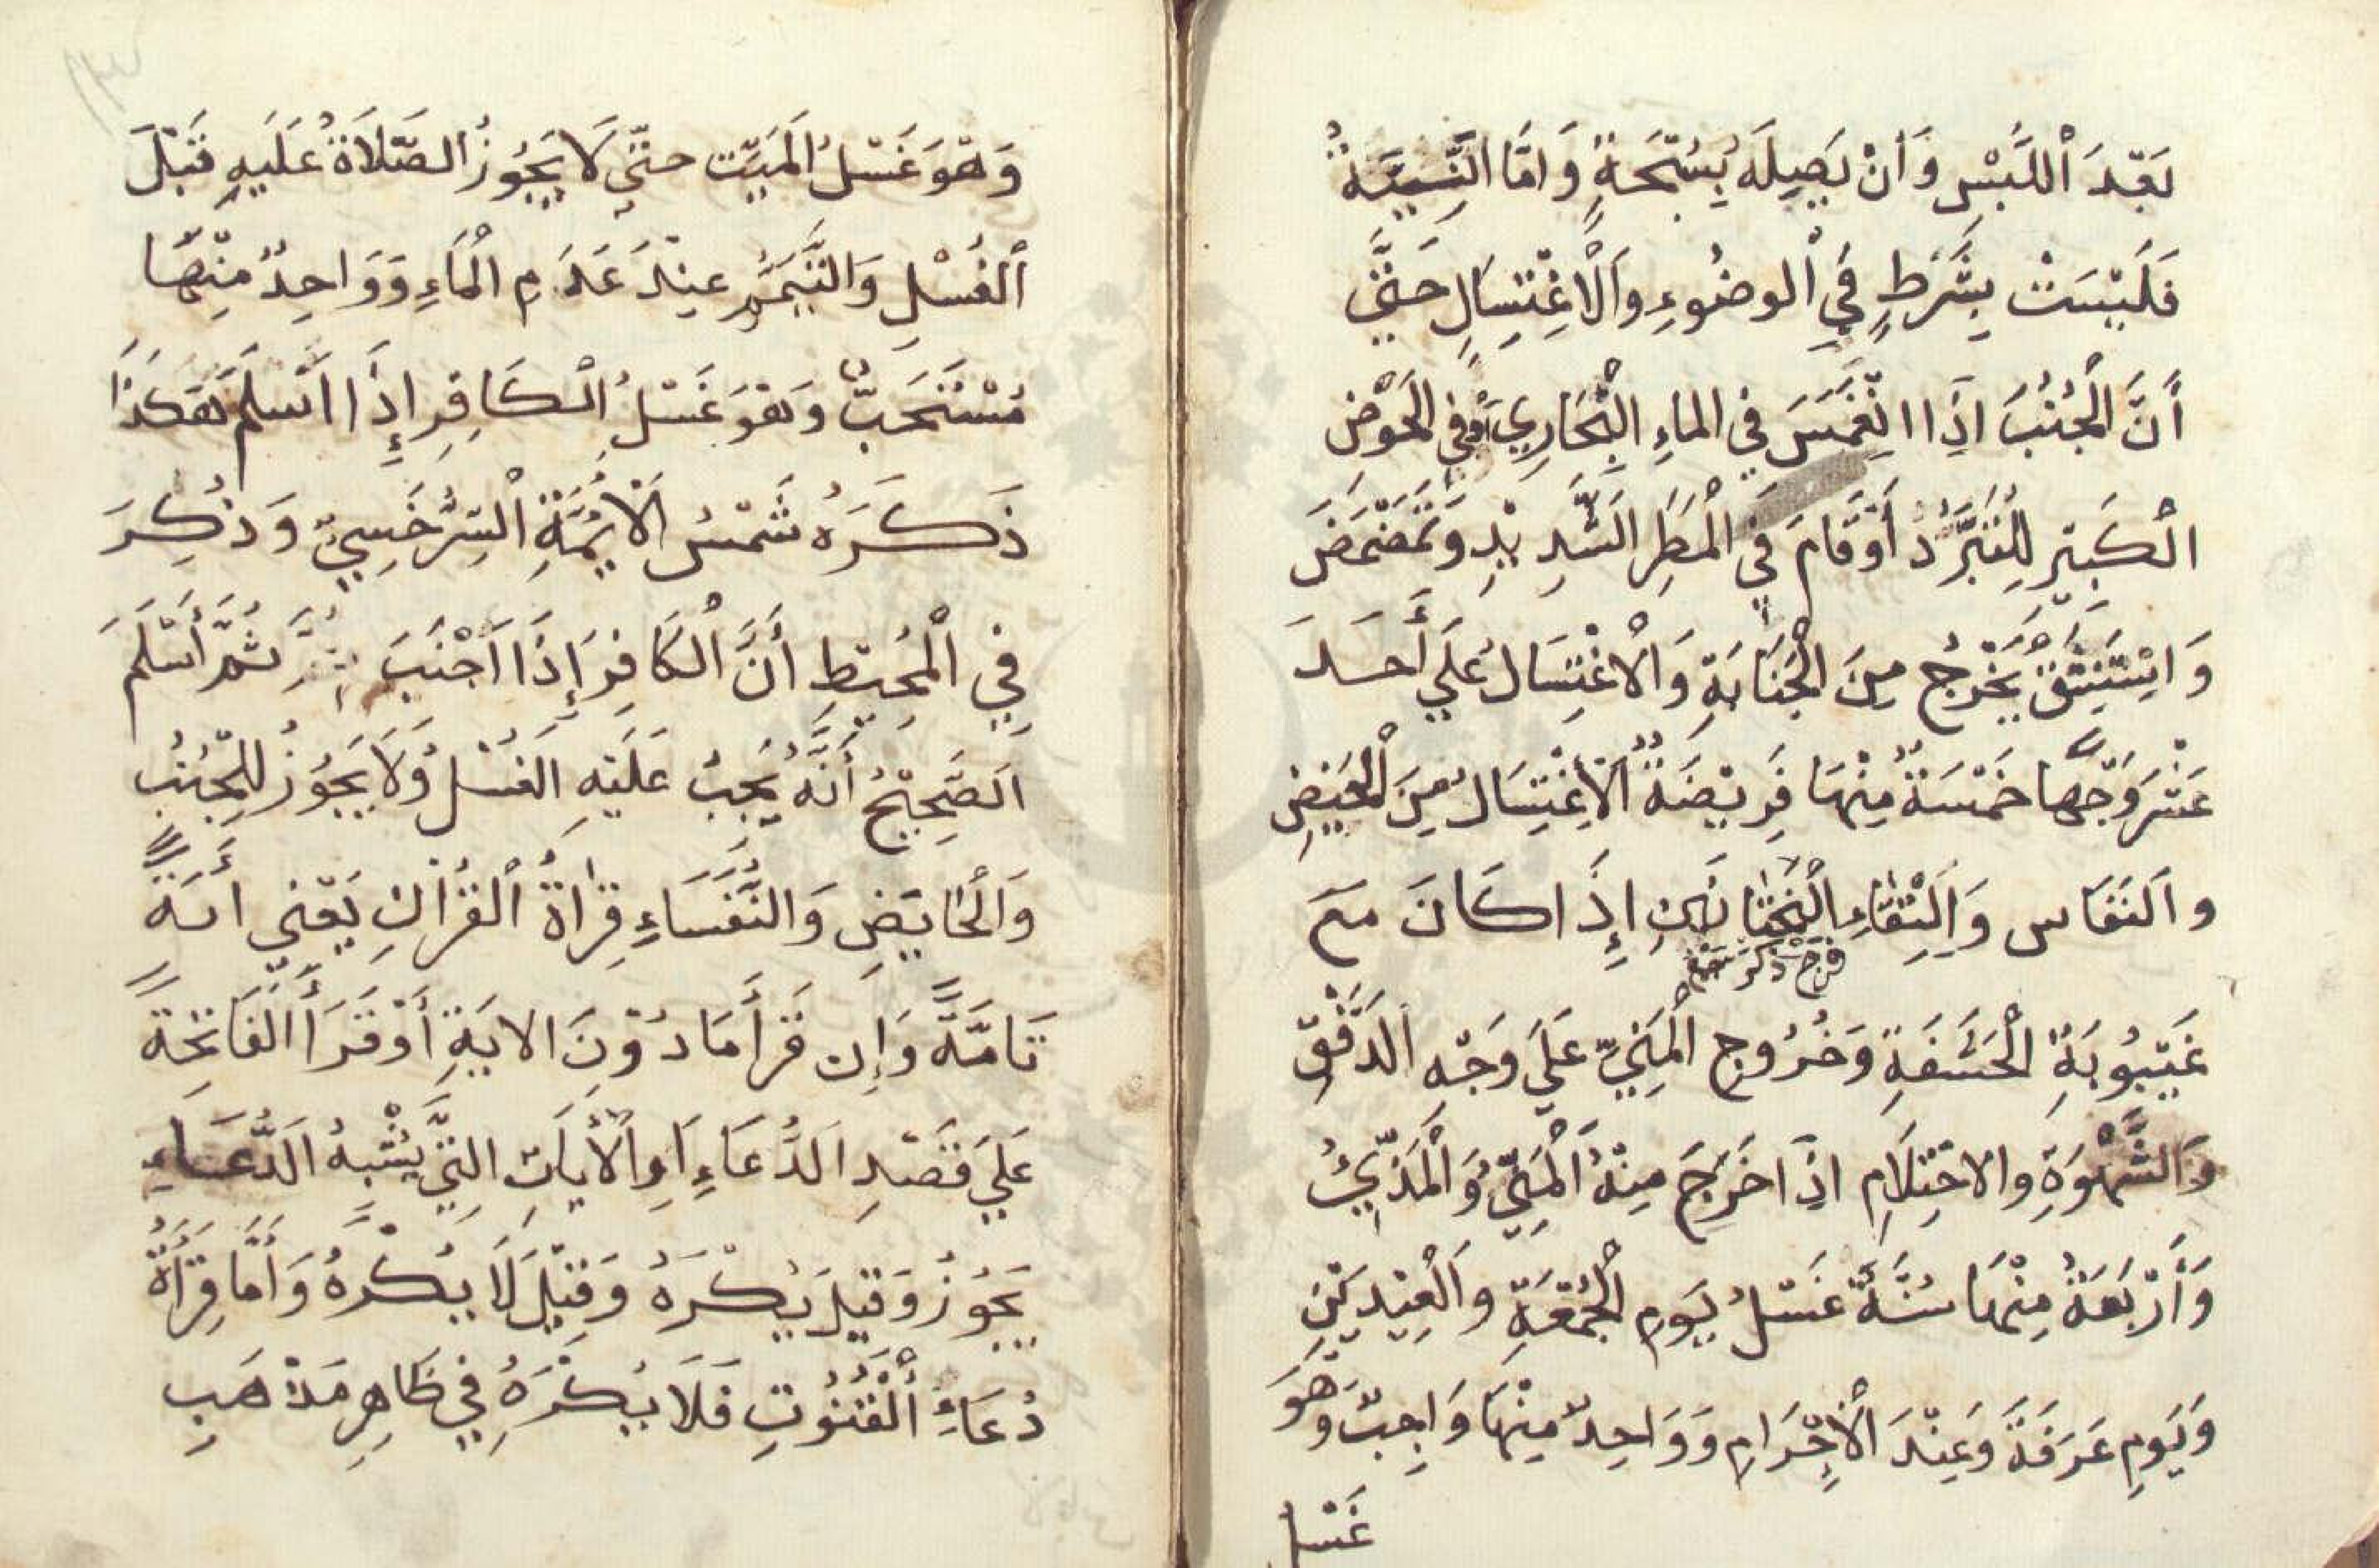 بَعْدَ اْللَّبْسِ وَأَنْ يَصِيلَهُ بِسُبْحَةٍ وَامَّا النِّيَّةُ
فَلَيْسَتْ بِشَرْطٍ فِي اْلوضُوءِ وَاْلاغْتِسَالِ حَتَّى
أَنَّ الْجُنُبَ اذَا انْغَمَسَ فِي الماءِ الْجَارِي أَوْ فِي الْحَوْضِ
الْكَبِيرِ لِلتَّبَرُّدِ أَوْ قَامَ فِي الْمَطَرِ الشَّدِيْدِ وَتَمَضْمَضَ
وَاسْتَنْشَقَ يَخْرُجُ مِنَ الْجَنَابَةِ وَالْاغْتِسَالُ عَلَي أَحَدَ
عَشَرَ وَجْهًا خَمْسَةٌ مِنْهَا فَرِيْضَةٌ اَلْاغْتِسَالُ مِنَ الْحَيْضِ
وَالنَفَاس وَالْتِقَاءِ الْخِتَانَيْنِ إِذَا كَانَ مَعَ
غَيْبُوبَةِ الْحَشَفَةِ وَخُرُوجِ الْمَنِيِّ عَلَي وَجْهِ الدَّفْقِ
وَالشَّهْوَةِ والاحْتِلَامِ اذَا خَرَجَ مِنْهُ الْمَنِيُّ وَالْمَذِيُّ
وَأَرْبَعَةٌ مِنْهَا سُنَّةٌ غَسْلُ يَوْمِ الْجُمُعَةِ وَالْعِيْدَيْنِ
وَيَوْمِ عَرَفَةَ وَعِنْدَ الْإِحْرَامِ وَوَاحِدٌ مِنْهَا وَاجِبٌ وَهُوَ
غَسْلُ
وَهُوَ غَسْلُ الْمَيِّت حتّي لَا يَجُوزُ الصَّلَاةُ عَلَيْهِ قَبْلَ
اْلغُسْلِ وَالتَّيَمُّمِ عِنْدَ عَدَمِ الْمَاءِ وَوَاحِدٌ مِنْهَا
مُسْتَحَبٌّ وَهُوَ غَسْلُ الْكَافِرِ إِذَا اَسْلَمَ هَكَذَا
ذَكَرَهُ شَمْسُ الْأَئِمَّةِ السَّرْخَسِيّ وَذُكِرَ
فِي الْمُحِيْطِ أَنَّ الْكَافِرَ إِذَا اَجْنَبَ ثُمَّ أَسْلَمَ
اَلصَّحِيْحُ أَنَّهُ يَجِبُ عَلَيْهِ الْغُسْلُ وَلَا يَجُوزُ لِلْجُنُبِ
وَالْحَايَضِ وَالنُّفَسَاءِ قِرَاةُ الْقُرْاَنِ يَعْنِي اَيَةً
تَامَّةً وَإِن قَرَأَ مَا دُوْنَ الايَةِ أَوْ قَرَأَ الْفَاتِحَةَ
عَلَي قَصْدِ الدُّعَاءِ اَوِ الْأَيَاتِ الَّتِي يُشْبِهُ الدُّعَاءَ
يَجُوزُ وَقِيْلَ يُكْرَهُ وَقِيْلَ لَا يُكْرَهُ وَأَمَّا قِرَأَةُ
دُعَاءِ الْقُنُوتِ فَلَا يُكْرَهُ فِي ظَاهِرِ مَذْهَبِ